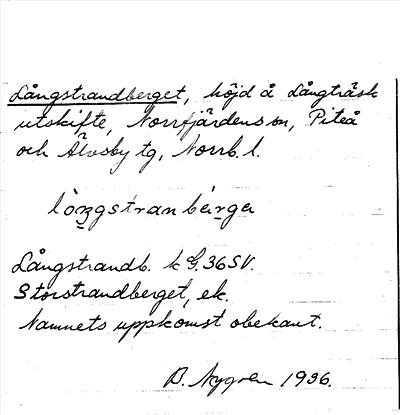 Långstrandberget, höjd å Långträsk
utskifte, Norrfjärdens sn, Piteå
och Älvsby tg, Norrb. l.
lòṉgstranbǽrga
Långstrandb. k G. 36 SV.
Storstrandberget, ek.
Namnets uppkomst obekant.
B. Nygren 1936.